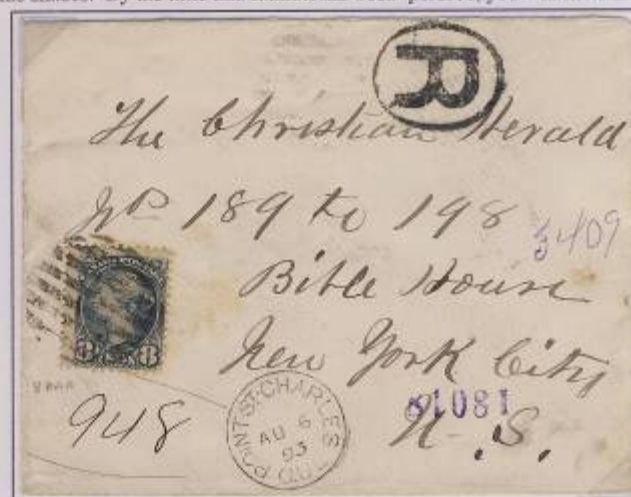 R
The Christian Herald
No 189 to 198
3409
Bible House
New York City
81081
U. S.
8 8
948
POINT ST. CHARLES
AU 6
93
QUE